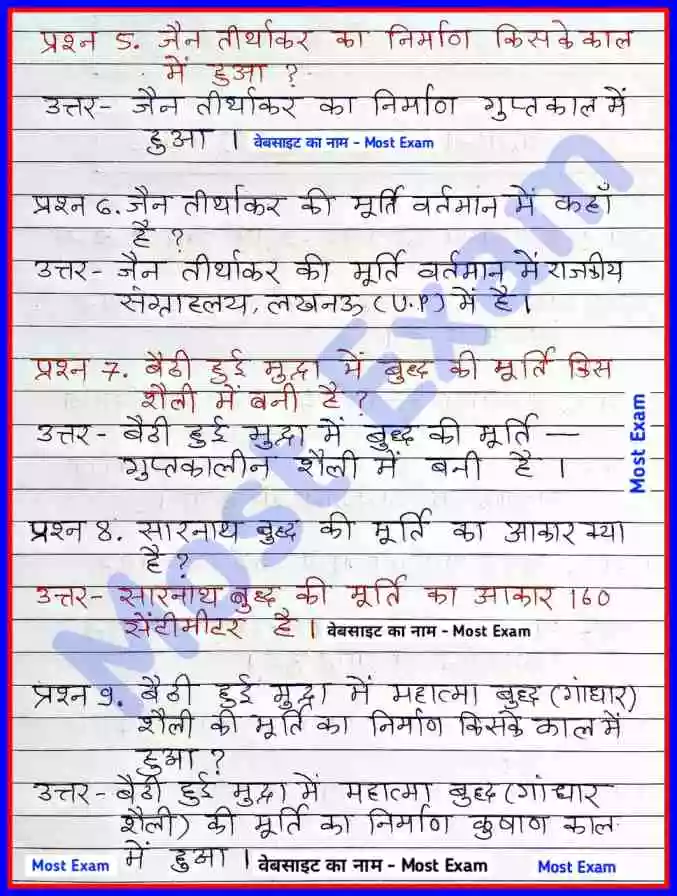 प्रश्न 5. जैन तीर्थाकर का निर्माण किसके काल
में हुआ ?
उत्तर- जैन तीर्थाकर का निर्माण गुप्तकाल में
हुआ । वेबसाइट का नाम - Most Exam
प्रश्न 6. जैन तीर्थाकर की मूर्ति वर्तमान में कहाँ
है ?
उत्तर- जैन तीर्थाकर की मूर्ति वर्तमान में राजकीय
संग्राहलय, लखनऊ (U.P) में है।
प्रश्न 7. बैठी हुई मुद्रा में बुद्ध की मूर्ति किस
शैली में बनी है ?
उत्तर- बैठी हुई मुद्रा में बुद्ध की मूर्ति —
गुप्तकालीन शैली में बनी है ।
Most Exam
प्रश्न 8. सारनाथ बुद्ध की मूर्ति का आकार क्या
है ?
उत्तर- सारनाथ बुद्ध की मूर्ति का आकार 160
सेंटीमीटर है । वेबसाइट का नाम - Most Exam
प्रश्न 9. बैठी हुई मुद्रा में महात्मा बुद्ध (गांधार)
शैली की मूर्ति का निर्माण किसके काल में
हुआ ?
उत्तर- बैठी हुई मुद्रा में महात्मा बुद्ध (गांधार
शैली) की मूर्ति का निर्माण कुषाण काल
में हुआ । वेबसाइट का नाम - Most Exam
Most Exam
Most Exam
Most Exam